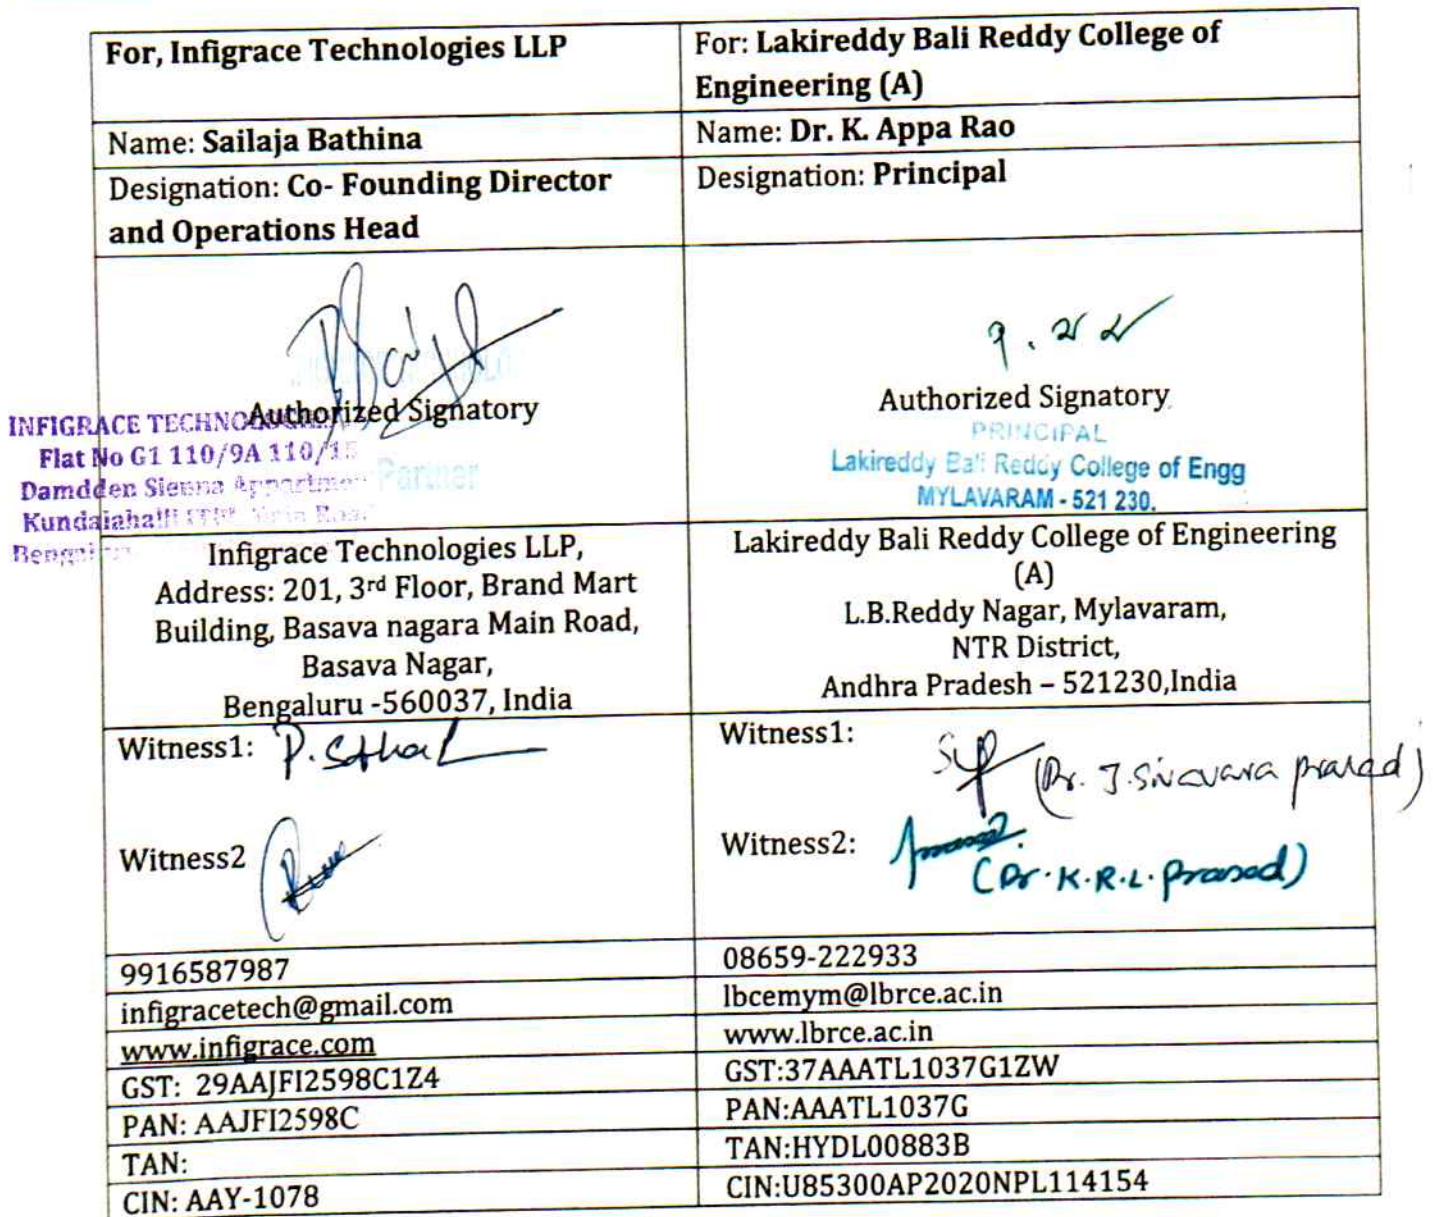 For, Infigrace Technologies LLP
For: Lakireddy Bali Reddy College of
Engineering (A)
Name: Sailaja Bathina
Name: Dr. K. Appa Rao
Designation: Co- Founding Director
and Operations Head
Designation: Principal
Authorized Signatory
INFIGRACE TECHNO
Flat No G1 110/9A 110/15
Damdden Sienna
Kundalahalli
Partner
Authorized Signatory
PRINCIPAL
Lakireddy Bali Reddy College of Engg
MYLAVARAM - 521 230.
Infigrace Technologies LLP,
Address: 201, 3rd Floor, Brand Mart
Building, Basava nagara Main Road,
Basava Nagar,
Bengaluru -560037, India
Lakireddy Bali Reddy College of Engineering
(A)
L.B.Reddy Nagar, Mylavaram,
NTR District,
Andhra Pradesh – 521230,India
Witness1:
Witness2
Witness1:
(Dr. J. Sivavara prasad)
Witness2:
(Dr. K.R.L. Prasad)
9916587987
08659-222933
infigracetech@gmail.com
lbcemym@lbrce.ac.in
www.infigrace.com
www.lbrce.ac.in
GST: 29AAJFI2598C1Z4
GST:37AAATL1037G1ZW
PAN: AAJFI2598C
PAN:AAATL1037G
TAN:
TAN:HYDL00883B
CIN: AAY-1078
CIN:U85300AP2020NPL114154